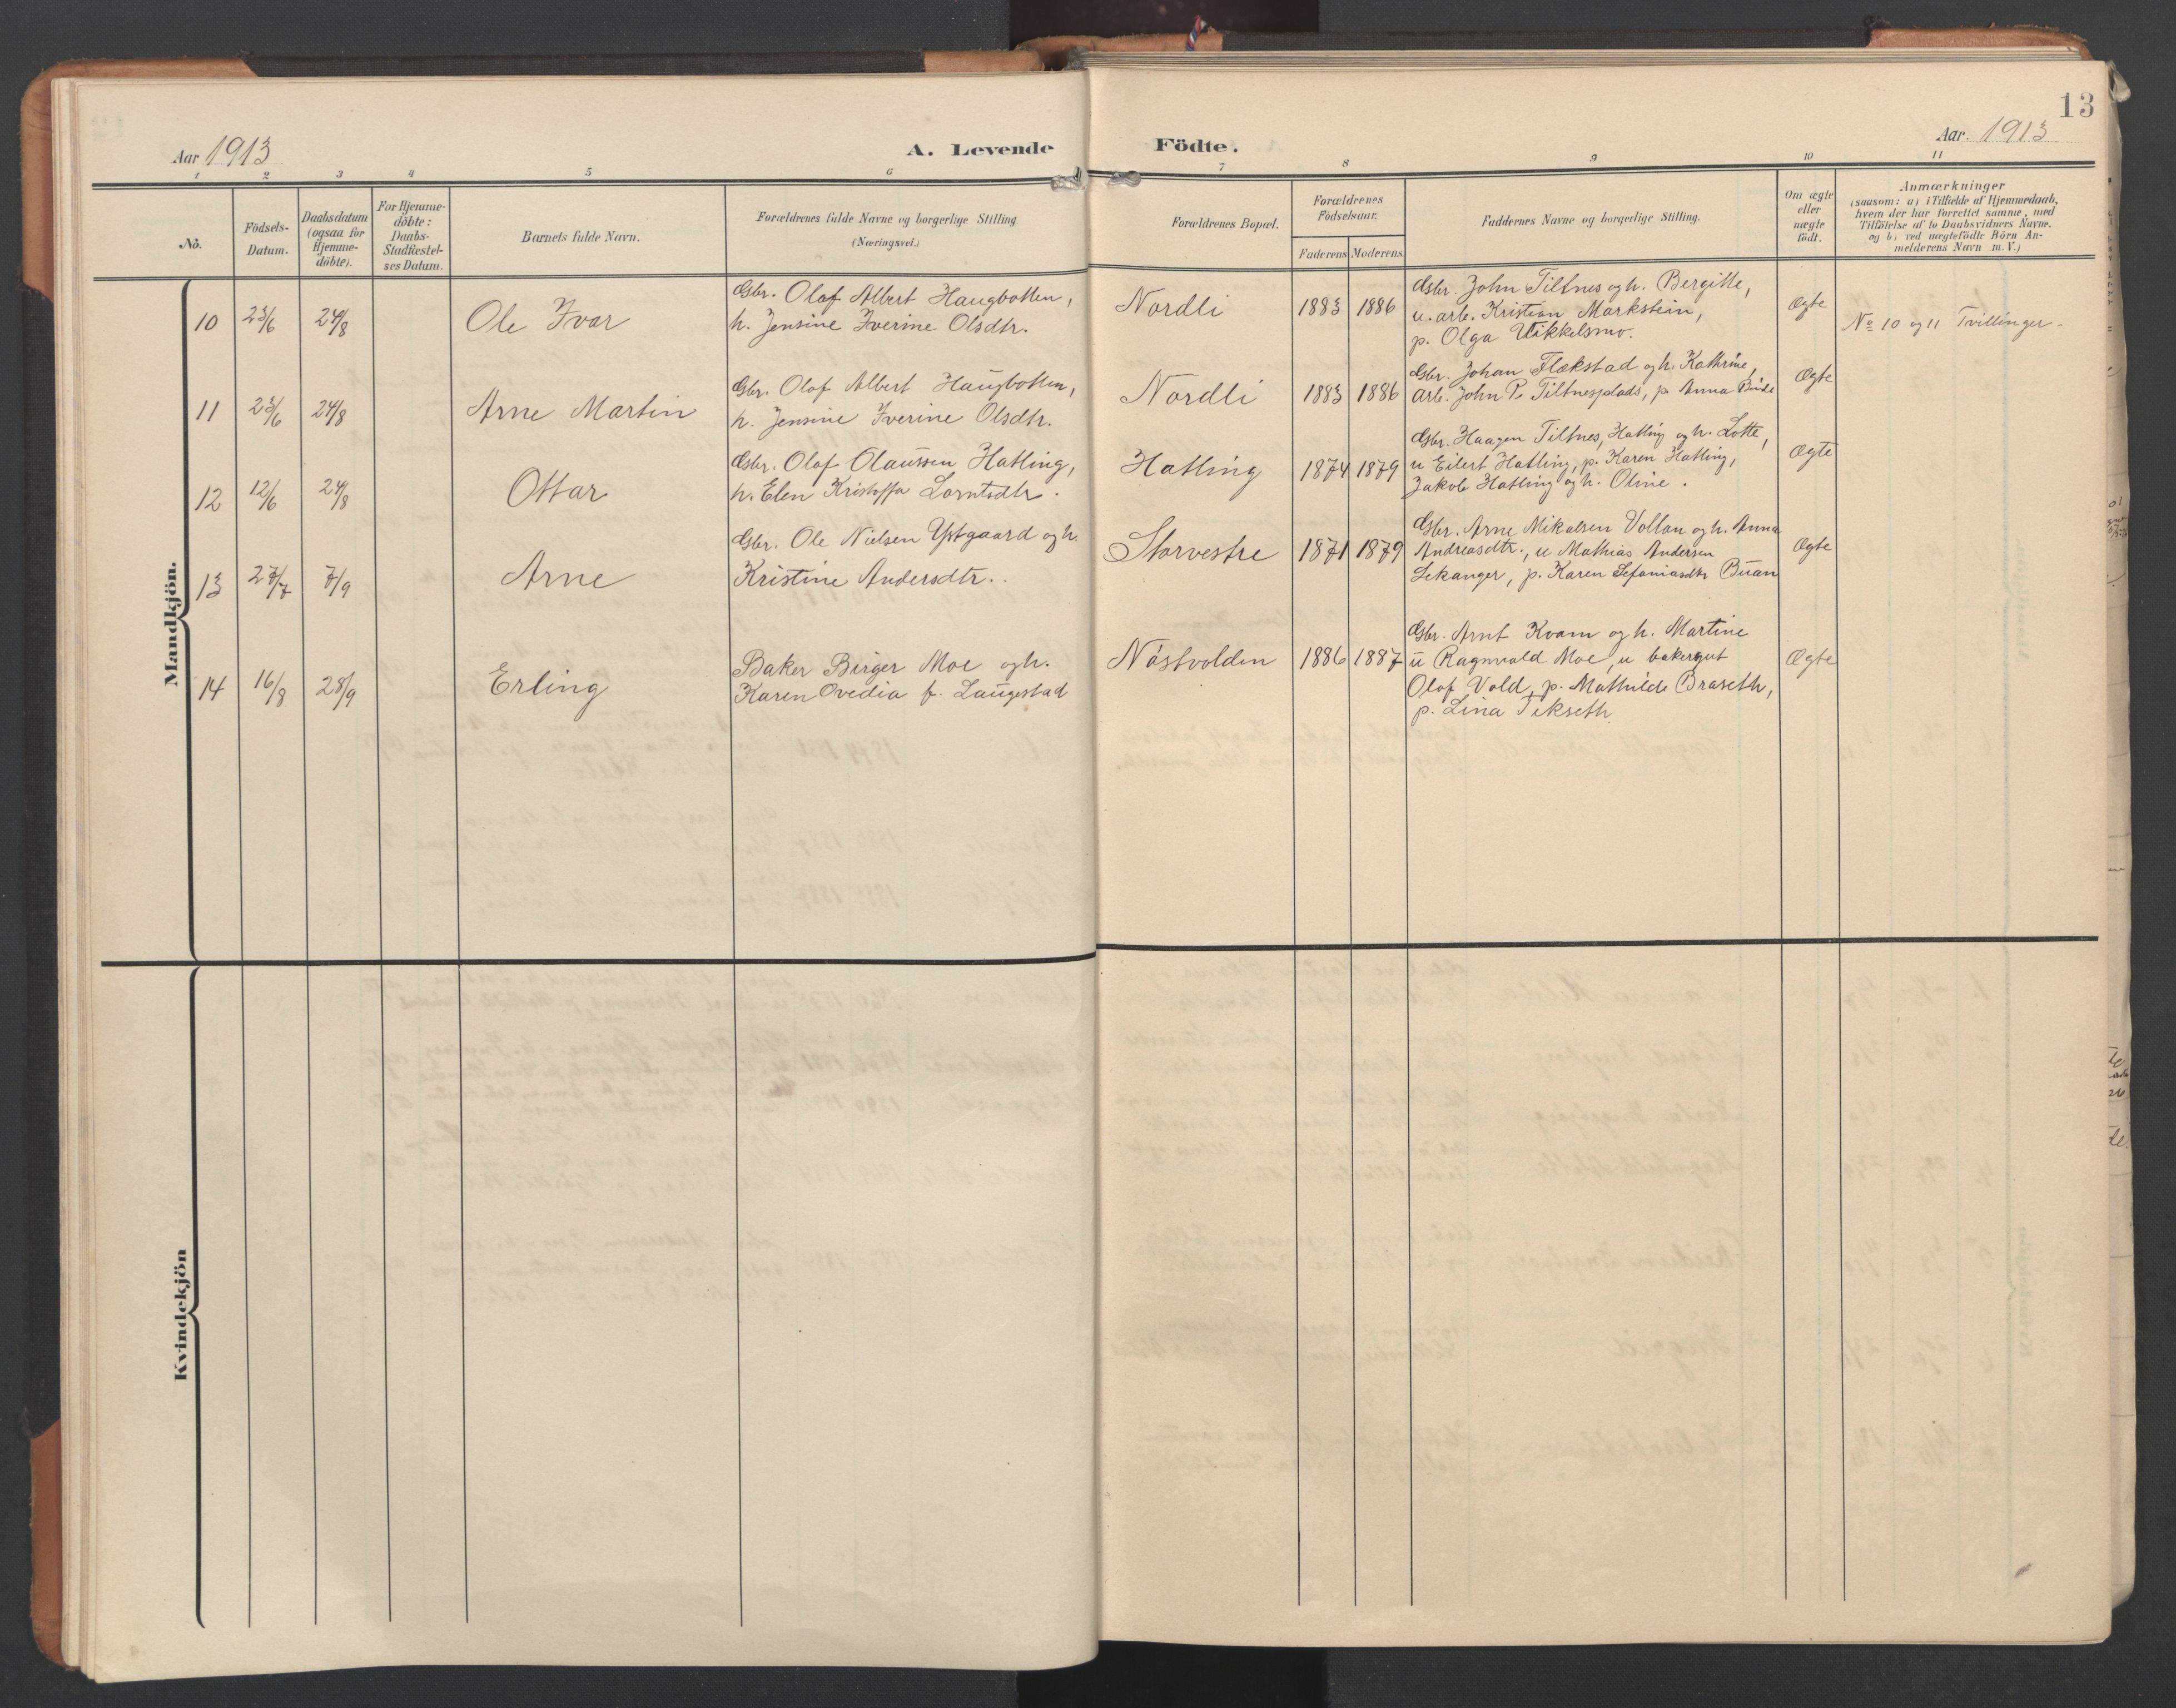 13
Aar 1913
A. Levende
Födte.
Aar. 1913
1 2 3 4 5 6 7 8 9 10 11
No.
Födsels-
Datum.
Daabsdatum
(ogsaa for
Hjemme-
döbte).
For Hjemme-
döbte:
Daabs-
Stadfæstel-
ses Datum.
Barnets fulde Navn.
Forældrenes fulde Navne og borgerlige Stilling.
(Næringsvei.)
Forældrenes Bopæl.
Forældrenes
Födselsaar.
Faderens Moderens
Faddernes Navne og borgerlige Stilling.
Om ægte
eller
uægte
födt.
Anmærkninger
(saasom: a) i Tilfælde af Hjemmedaab,
hvem der har forrettet samme, med
Tilföielse af to Daabsvidners Navne,
og b) ved uægtefödte Börn An-
melderens Navn m. V.)
Mandkjön.
10 23/6 24/8 Ole Ivar
Gbr. Olaf Albert Haugbotten,
h. Jensine Iverine Olsdtr.
Nordli 1883 1886
Gbr. John Tiltnes og h. Bergitte,
u. arb. Kristian Markstein,
p. Olga Vikkelsmo.
Ægte
No 10 og 11 Tvillinger.
11 23/6 24/8 Arne Martin
Gbr. Olaf Albert Haugbotten,
h. Jensine Iverine Olsdtr.
Nordli 1883 1886
Gbr. Johan Flækstad og h. Kathrine,
Arb. John P. Tiltnesplads, p. Anna Binde
Ægte
12 12/6 24/8 Ottar
Gbr. Olaf Olaussen Hatling,
h. Elen Kristoffa Lorntsdtr.
Hatling 1874 1879
Gbr. Haagen Tiltnes, Hatling og h. Lotte,
u Eilert Hatling, p. Karen Hatling,
Jakob Hatling og h. Oline.
Ægte
13 27/7 7/9 Arne
Gbr. Ole Nielsen Ystgaard og h.
Kristine Andersdtr..
Storvestre 1871 1879
Gbr. Arne Mikalsen Vollan og h. Anna
Andreasdtr., u Mathias Andersen
Lekanger, p. Karen Sefaniasdtr Buan
Ægte
14 16/8 28/9 Erling
Baker Birger Moe og h.
Karen Ovedia f. Laugestad
Nöstvolden 1886 1887
Gbr. Arnt Kvam og h. Martine
u Ragnvald Moe, u bakergut
Olaf Vold, p. Mathilde Braseth,
p. Lina Tekseth
Ægte
Kvindekjön